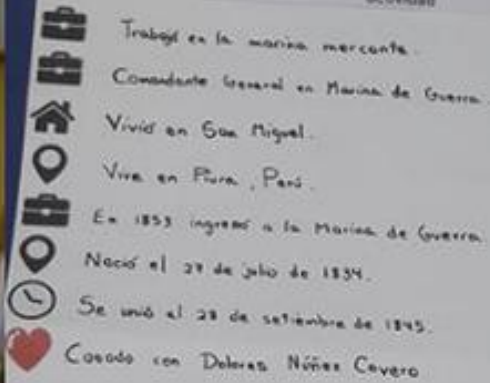 Trabajó en la marina mercante.
Comandante General en Marina de Guerra.
Vivió en San Miguel.
Vive en Piura, Perú.
En 1853 ingresó a la Marina de Guerra
Nació el 27 de julio de 1834.
Se unió el 28 de setiembre de 1845.
Casado con Dolores Núñez Cavero